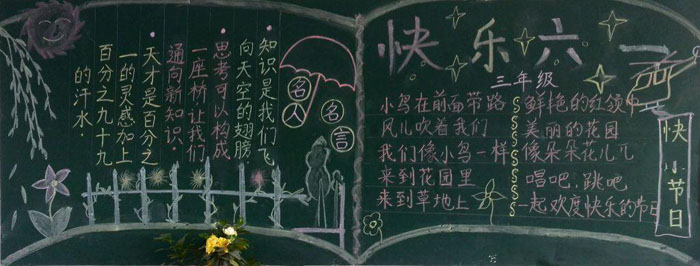 名人
名言
知识是我们飞
向天空的翅膀
思考可以构成
一座桥让我们
通向新知识.
天才是百分之
一的灵感加上
百分之九十九
的汗水.
快乐六一
三年级
小鸟在前面带路
风儿吹着我们
我们像小鸟一样
来到花园里
来到草地上
鲜艳的红领巾
美丽的花园
像朵朵花儿兀
唱吧,跳吧
一起欢度快乐的节日
快小节日